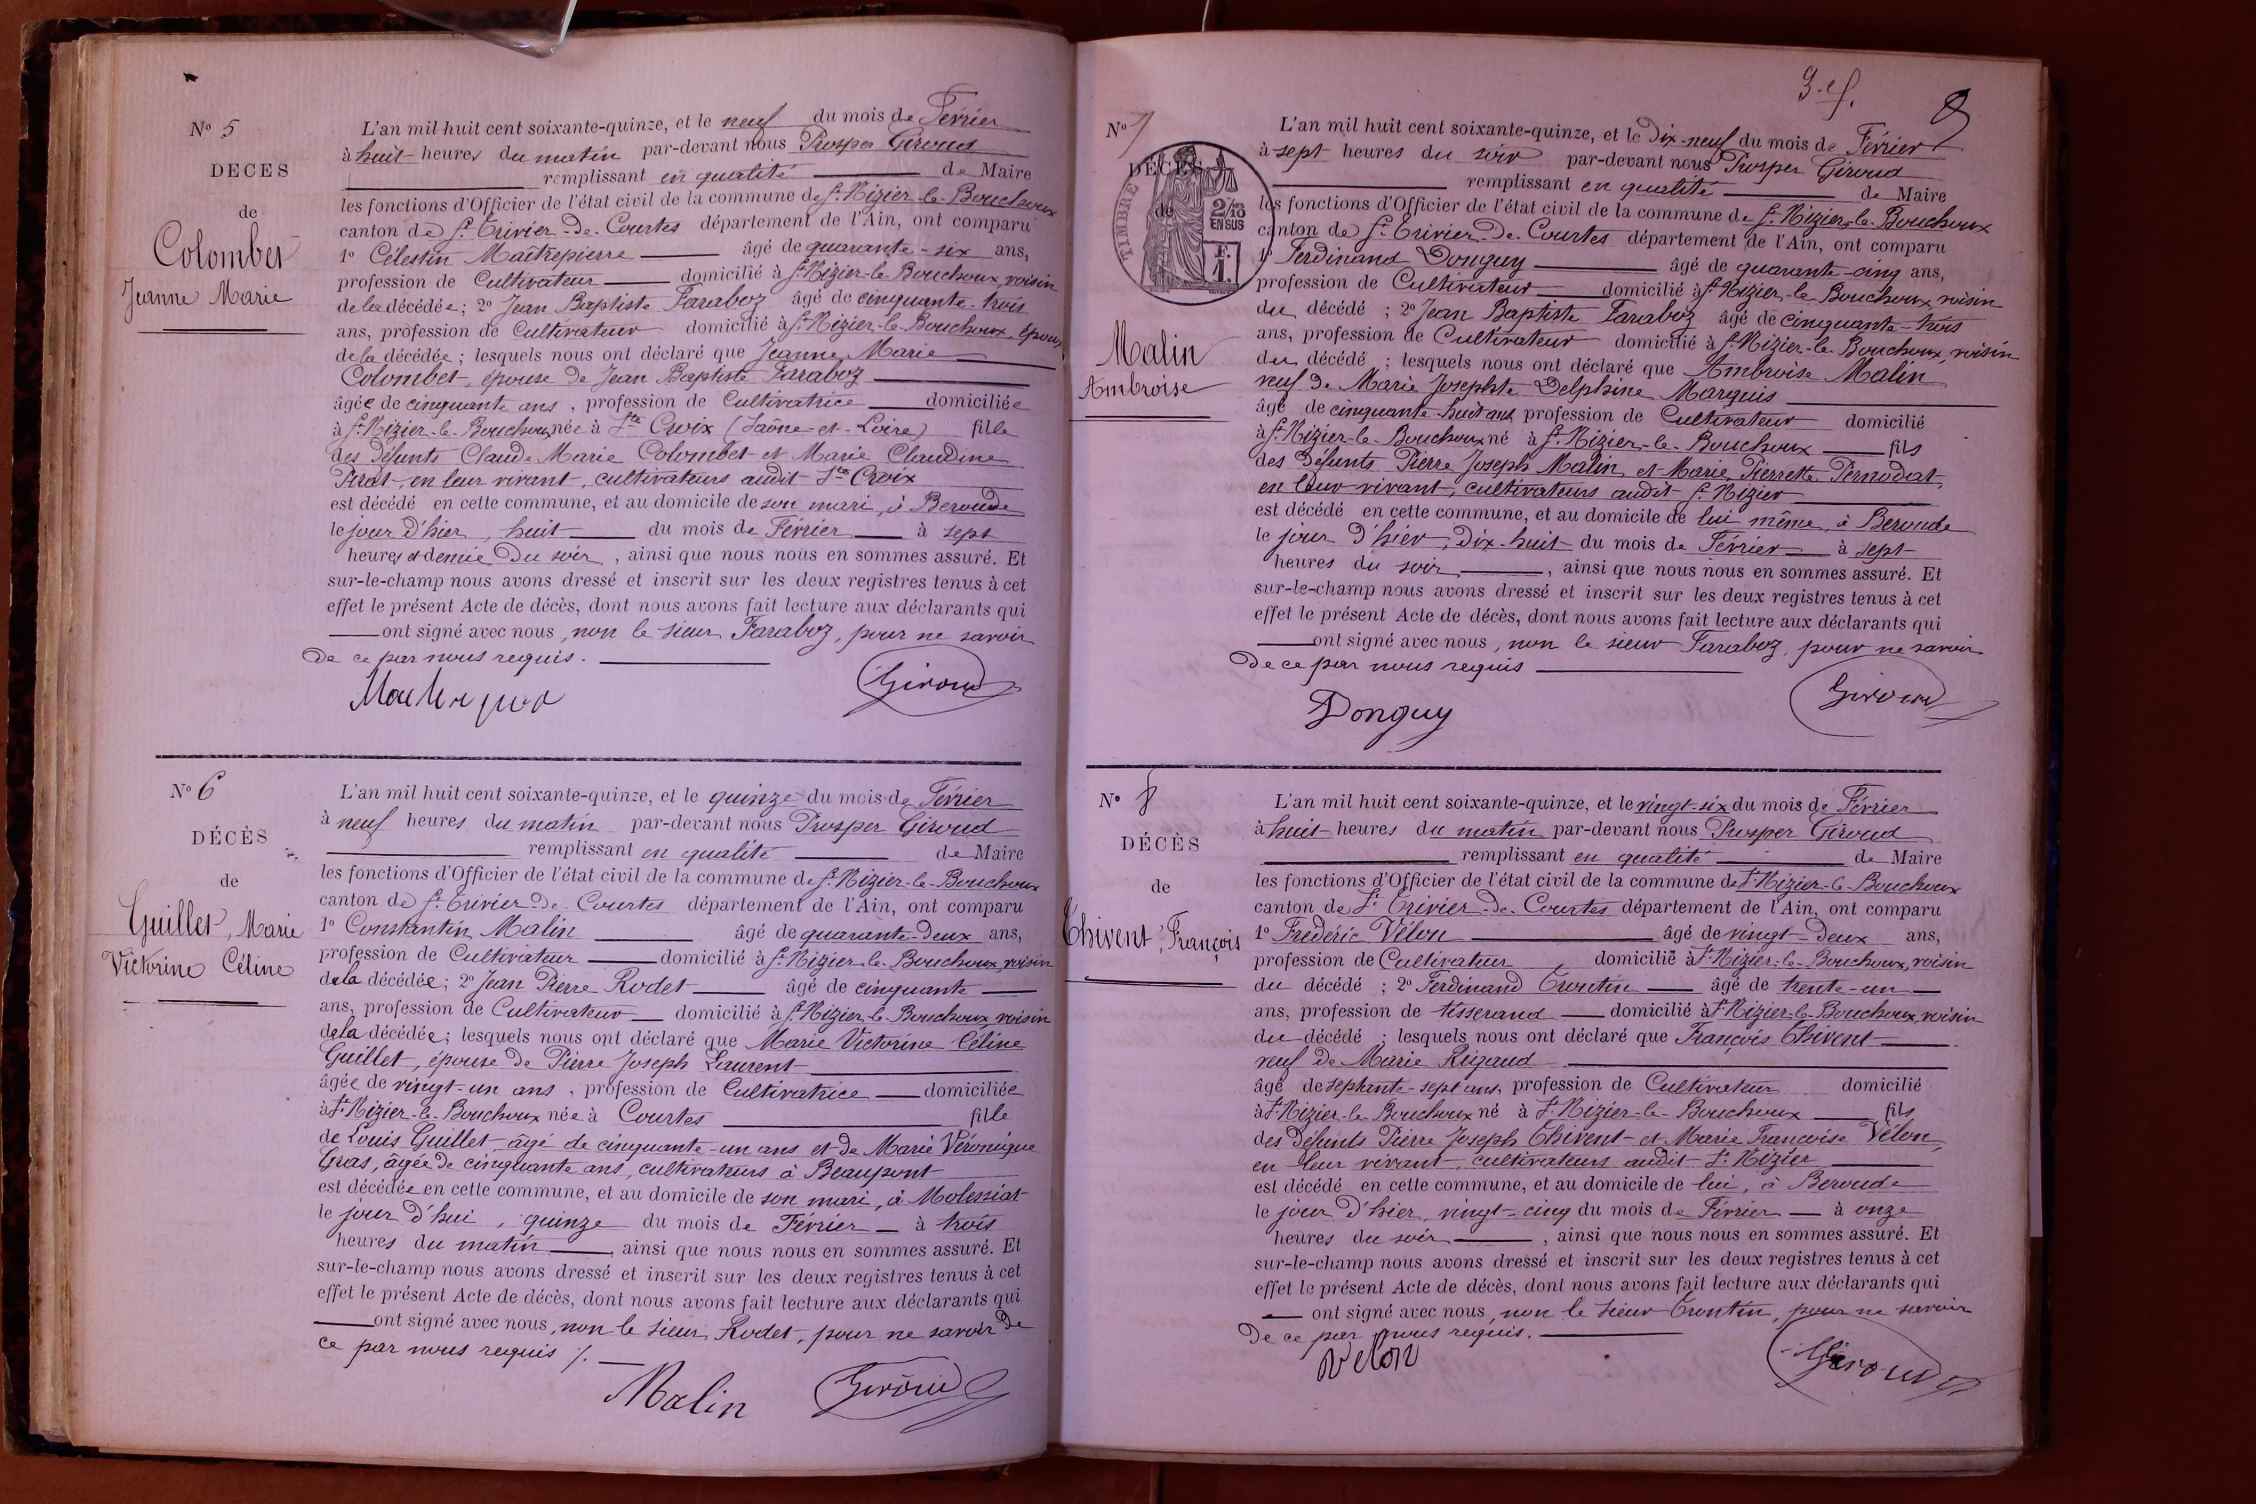 Nº 5
DECES
de
Colombet
Jeanne Marie
L'an mil huit cent soixante-quinze, et le neuf du mois de Février
à huit heures du matin par-devant nous Prosper Giroud
remplissant en qualité de Maire
les fonctions d'Officier de l'état civil de la commune de St Nizier-le-Bouchoux
canton de St Trivier-de-Courtes département de l'Ain, ont comparu
1º Célestin Maîtrepierre âgé de quarante-six ans,
profession de Cultivateur domicilié à St Nizier-le-Bouchoux, voisin
de la décédée ; 2º Jean Baptiste Faraboz âgé de cinquante-trois
ans, profession de Cultivateur domicilié à St Nizier-le-Bouchoux, époux
de la décédée ; lesquels nous ont déclaré que Jeanne Marie
Colombet, épouse de Jean Baptiste Faraboz
âgée de cinquante ans, profession de Cultivatrice domiciliée
à St Nizier-le-Bouchoux née à Ste Croix (Saône-et-Loire) fille
des défunts Claude Marie Colombet et Marie Claudine
en leur vivant, cultivateurs audit Ste Croix
est décédé en cette commune, et au domicile de son mari, à Beroude
le jour d'hier, huit du mois de Février à sept
heures et demie du soir, ainsi que nous nous en sommes assuré. Et
sur-le-champ nous avons dressé et inscrit sur les deux registres tenus à cet
effet le présent Acte de décès, dont nous avons fait lecture aux déclarants qui
ont signé avec nous, non le sieur Faraboz, pour ne savoir
de ce par nous requis.
Giroud
Nº 6
DÉCÈS
de
Guillet, Marie
Victorine Céline
L'an mil huit cent soixante-quinze, et le quinze du mois de Février
à neuf heures du matin par-devant nous Prosper Giroud
remplissant en qualité de Maire
les fonctions d'Officier de l'état civil de la commune de St Nizier-le-Bouchoux
canton de St Trivier-de-Courtes département de l'Ain, ont comparu
1º Constantin Malin âgé de quarante-deux ans,
profession de Cultivateur domicilié à St Nizier-le-Bouchoux, voisin
de la décédée ; 2º Jean Pierre Rodet âgé de cinquante
ans, profession de Cultivateur domicilié à St Nizier-le-Bouchoux, voisin
de la décédée ; lesquels nous ont déclaré que Marie Victorine Céline
Guillet, épouse de Pierre Joseph Laurent
âgée de vingt-un ans, profession de Cultivatrice domiciliée
à St Nizier-le-Bouchoux née à Courtes fille
de Louis Guillet âgé de cinquante-un ans et de Marie Véronique
Gras, âgée de cinquante ans, cultivateurs à Beaupont
est décédée en cette commune, et au domicile de son mari, à Molessiat
le jour d'hui, quinze du mois de Février à trois
heures du matin, ainsi que nous nous en sommes assuré. Et
sur-le-champ nous avons dressé et inscrit sur les deux registres tenus à cet
effet le présent Acte de décès, dont nous avons fait lecture aux déclarants qui
ont signé avec nous, non le sieur Rodet, pour ne savoir de
ce par nous requis /.
Malin Giroud
8
Nº 7
DÉCÈS
de
TIMBRE
2/10
EN SUS
F.
1.
Malin
Ambroise
L'an mil huit cent soixante-quinze, et le dix-neuf du mois de Février
à sept heures du soir par-devant nous Prosper Giroud
remplissant en qualité de Maire
les fonctions d'Officier de l'état civil de la commune de St Nizier-le-Bouchoux
canton de St Trivier-de-Courtes département de l'Ain, ont comparu
1º Ferdinand Donguy âgé de quarante-cinq ans,
profession de Cultivateur domicilié à St Nizier-le-Bouchoux, voisin
du décédé ; 2º Jean Baptiste Faraboz âgé de cinquante-trois
ans, profession de Cultivateur domicilié à St Nizier-le-Bouchoux, voisin
du décédé ; lesquels nous ont déclaré que Ambroise Malin
veuf de Marie Josephte Delphine Marquis
âgé de cinquante-huit ans profession de Cultivateur domicilié
à St Nizier-le-Bouchoux né à St Nizier-le-Bouchoux fils
des défunts Pierre Joseph Malin et Marie Pierrette Pernodat,
en leur vivant, cultivateurs audit St Nizier
est décédé en cette commune, et au domicile de lui même, à Beroude
le jour d'hier, dix-huit du mois de Février à sept
heures du soir, ainsi que nous nous en sommes assuré. Et
sur-le-champ nous avons dressé et inscrit sur les deux registres tenus à cet
effet le présent Acte de décès, dont nous avons fait lecture aux déclarants qui
ont signé avec nous, non le sieur Faraboz, pour ne savoir
de ce par nous requis
Donguy Giroud
Nº 8
DÉCÈS
de
Thivent, François
L'an mil huit cent soixante-quinze, et le vingt-six du mois de Février
à huit heures du matin par-devant nous Prosper Giroud
remplissant en qualité de Maire
les fonctions d'Officier de l'état civil de la commune de St Nizier-le-Bouchoux
canton de St Trivier-de-Courtes département de l'Ain, ont comparu
1º Frédéric Vélon âgé de vingt-deux ans,
profession de Cultivateur domicilié à St Nizier-le-Bouchoux, voisin
du décédé ; 2º Ferdinand Trontin âgé de trente-un
ans, profession de tisserand domicilié à St Nizier-le-Bouchoux, voisin
du décédé ; lesquels nous ont déclaré que François Thivent
veuf de Marie Rigaud
âgé de septante-sept ans, profession de Cultivateur domicilié
à St Nizier-le-Bouchoux né à St Nizier-le-Bouchoux fils
des défunts Pierre Joseph Thivent et Marie Françoise Vélon,
en leur vivant, cultivateurs audit St Nizier
est décédé en cette commune, et au domicile de lui, à Beroude
le jour d'hier, vingt-cinq du mois de Février à onze
heures du soir, ainsi que nous nous en sommes assuré. Et
sur-le-champ nous avons dressé et inscrit sur les deux registres tenus à cet
effet le présent Acte de décès, dont nous avons fait lecture aux déclarants qui
ont signé avec nous, non le sieur Trontin, pour ne savoir
de ce par nous requis.
Velon Giroud